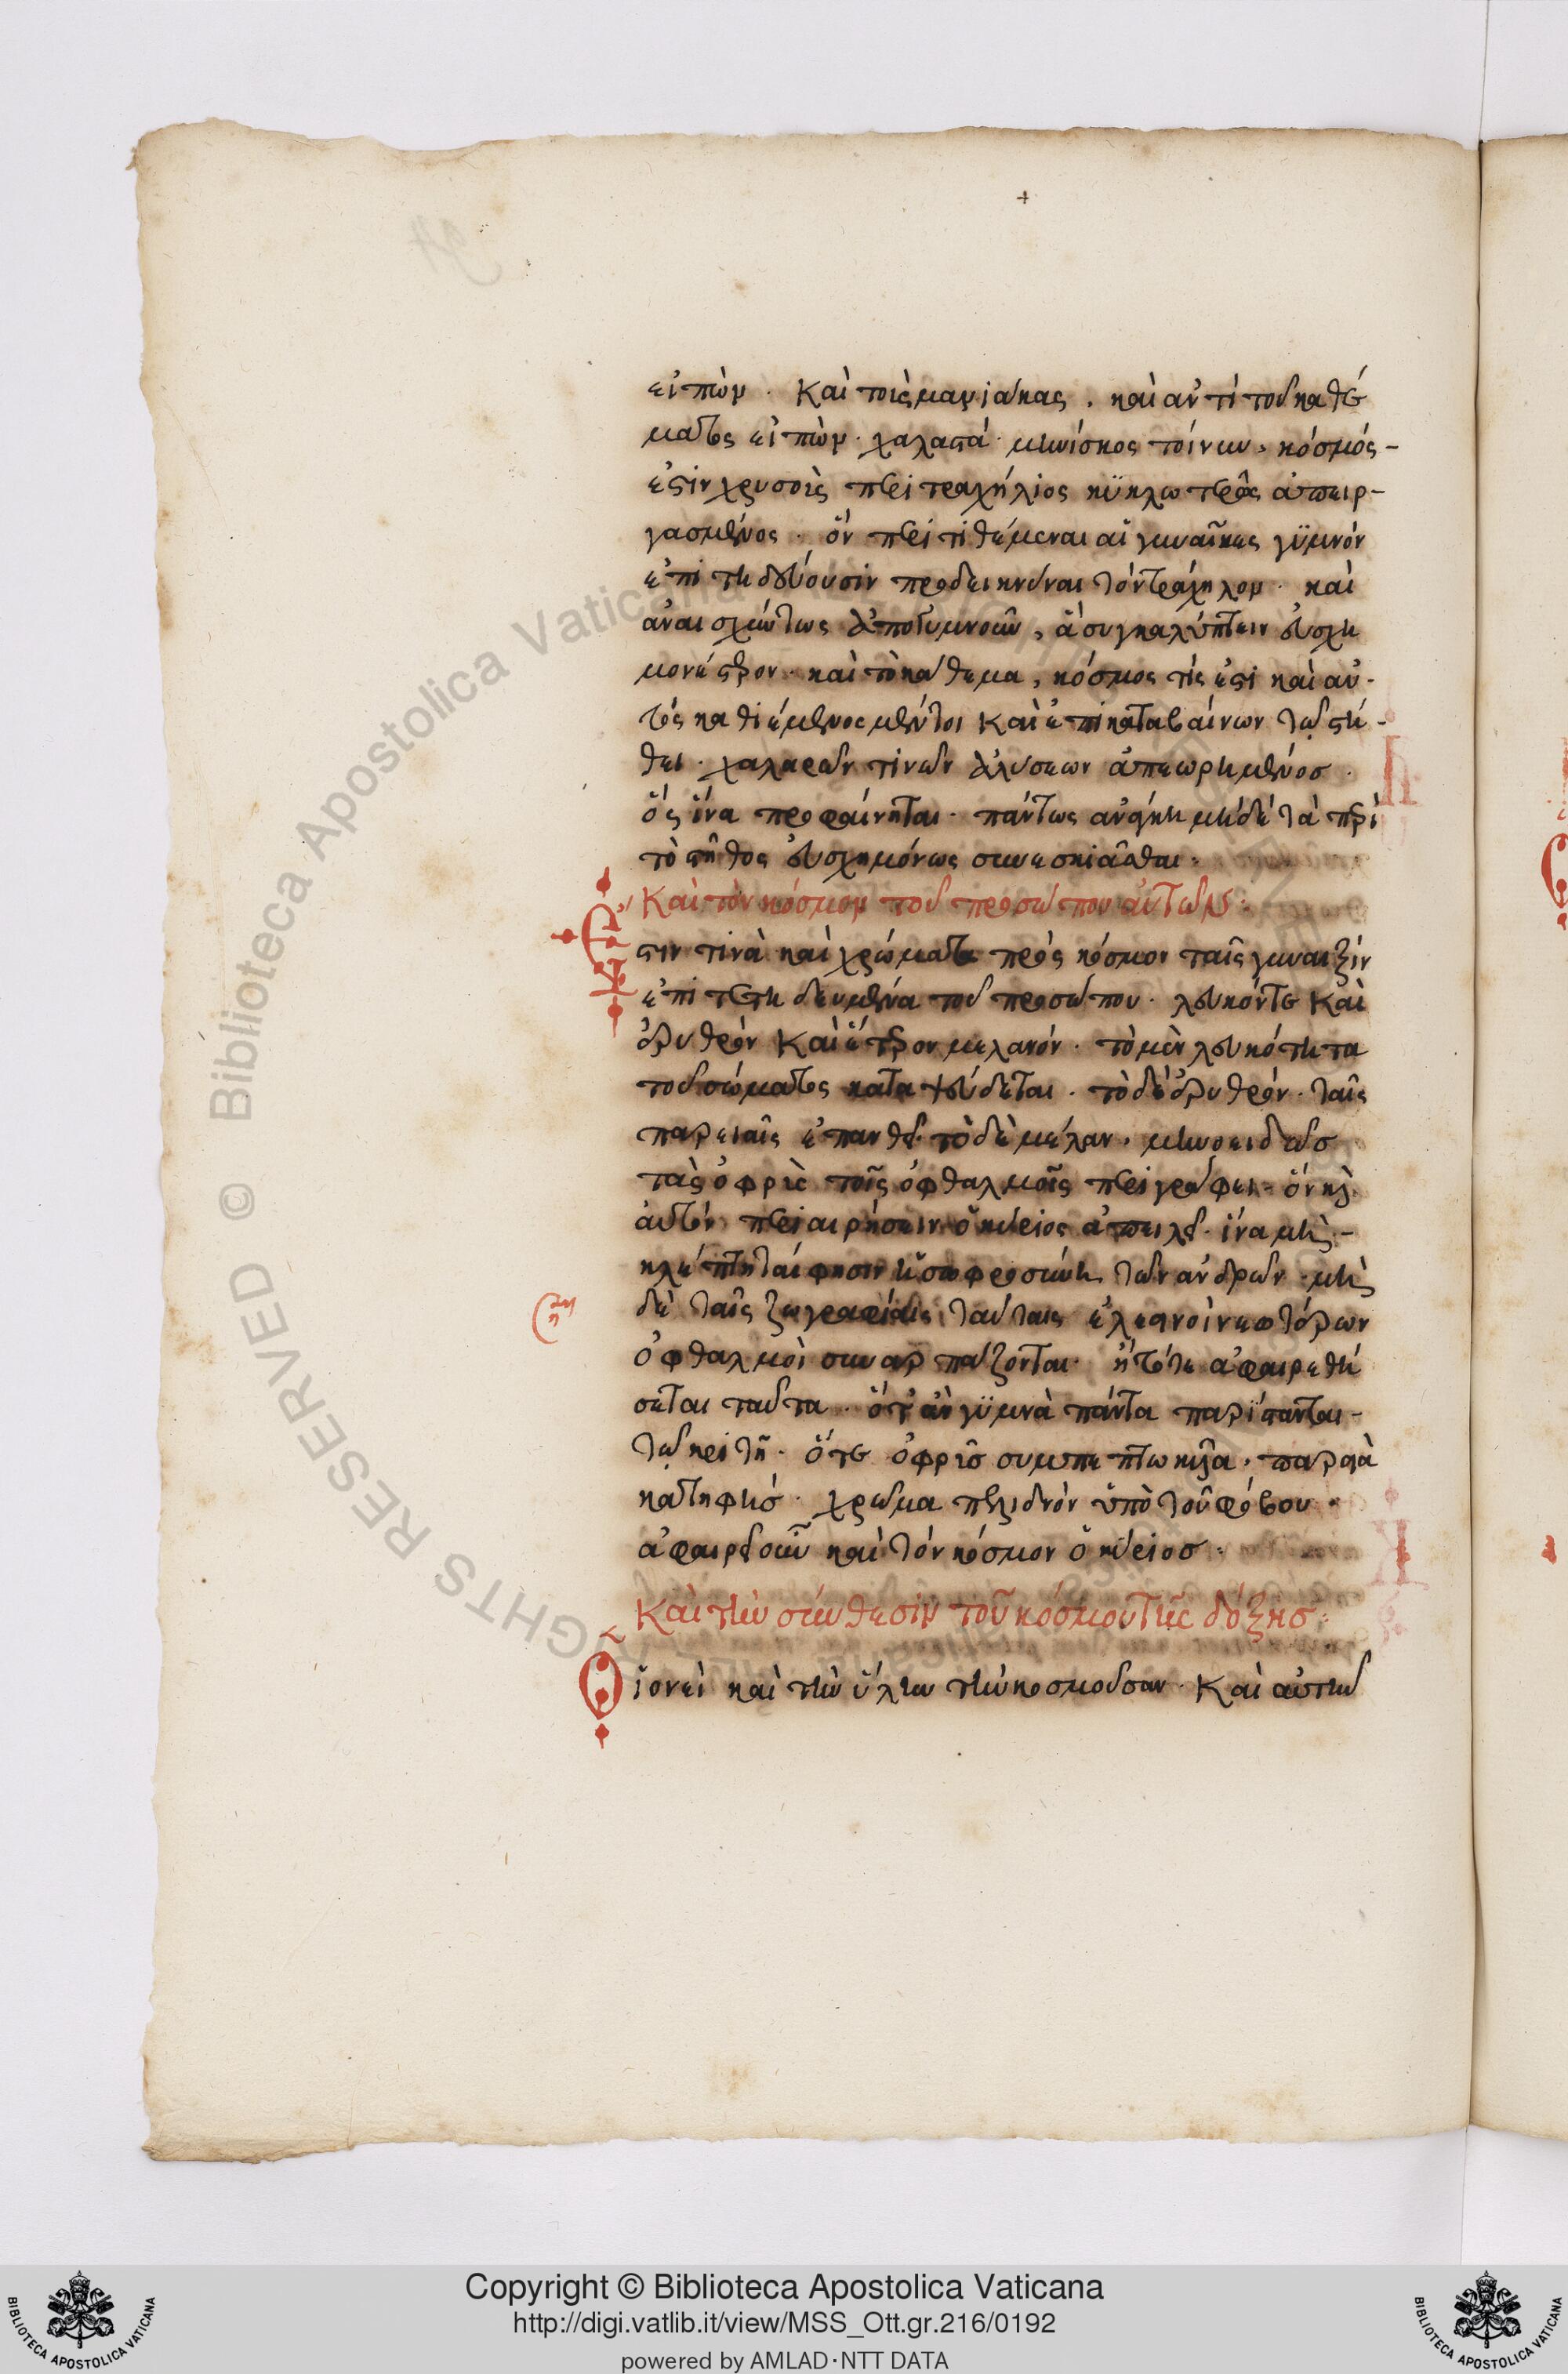 εἰπὼν. Καὶ τοὺς μανιάκας. καὶ ἀντὶ τοῦ καθέ
ματος εἰπὼν. χαλαστά. μηνίσκος τοίνυν, κόσμός-
ἐστὶν χρυσοῦς περιτραχήλιος κϋκλωτερῶς ἀπειρ-
γασμένος. ὅν περιτιθέμεναι αἱ γυναῖκες γϋμνόν
ἐπιτηδεύουσιν προδεικνύναι τὸν τράχηλον. καὶ
ἀναισχύντως ἀπογυμνοῦν, ἃ συγκαλύπτειν εὐσχη
μονέστερον. καὶ τὸ κάθεμα, κόσμος τίς ἐστι καὶ αὐ-
τός καθιέμενος μέντοι Καὶ ἐπικαταβαίνων τῷ στή-
θει. χαλαρῶν τινῶν ἁλύσεων ἀπηωρημένοσ.
ὅς ἵνα προφαίνηται. πάντως ἀνάγκη μὴδέ τὰ περὶ
τὸ στῆθος εὐσχημόνως συνεσκιᾶσθαι.
Καὶ τὸν κόσμον τοῦ προσώπου αὐτῶν.
Ἔστιν τινὰ καὶ χρώματα πρὸς κόσμον ταῖς γυναιξίν
ἐπιτετηδευμένα τοῦ προσώπου. λευκόντε Καὶ
ἐρυθρόν Καὶ ἕτερον μελανόν. τὸ μὲν λευκότητα
τοῦ σώματος καταψεύδεται. τὸ δὲ ἐρυθρόν. ταῖς
παρειαῖς ἐπανθεῖ. τὸ δὲ μέλαν. μηνοειδῶσ
τὰς ὀφρῦς τοῖς ὀφθαλμοῖς περιγράφει. ὅν καὶ
αὐτόν περιαιρήσειν ὁ κύριος ἀπειλεῖ. ἵνα μὴ-
κλέπτηταί φησιν ἡ σωφροσύνη τῶν ἀνδρῶν. μὴ
δὲ ταῖς ζωγραφίαις ταύταις
ὀφθαλμοὶ συναρπάζονται. ἢ τότε ἀφαιρεθή
σεται ταῦτα. ὅτ' ἂν γϋμνὰ πάντα παρίσταται-
τῷ κριτῇ. ὅτε ὀφρῦσ συμπεπτωκυῖα. παρειὰ
κατηφήσ. χρῶμα πελιδνόν ὑπὸ τοῦ φόβου.
ἀφαιρεῖ οὖν καὶ τὸν κόσμον ὁ κύριοσ.
Καὶ τὴν σύνθεσιν τοῦ κόσμου τῆς δόξησ.
Οἱονεὶ καὶ τὴν ὕλην τὴν κοσμοῦσαν. Καὶ αὐτὴν
Copyright © Biblioteca Apostolica Vaticana
http://digi.vatlib.it/view/MSS_Ott.gr.216/0192
powered by AMLAD·NTT DATA